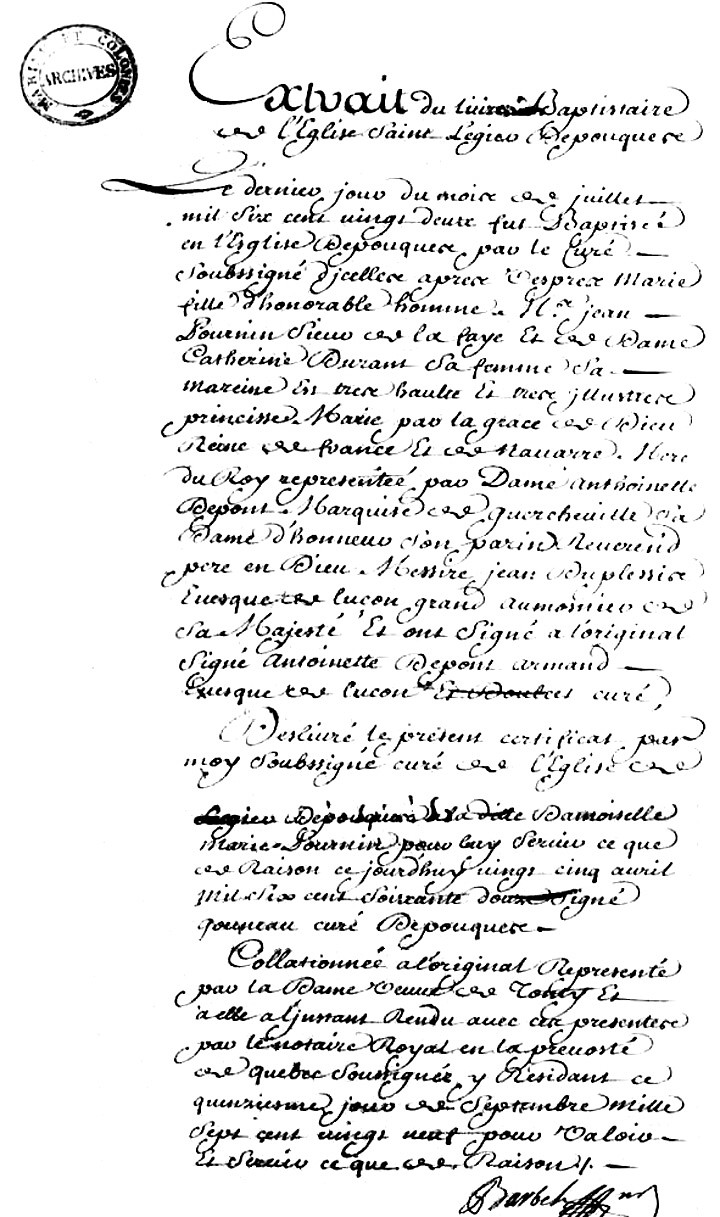 MARINE ET COLONIES
ARCHIVES
Extrait du livre Baptistaire
de l'Eglise Saint Legier Depouques
Le dernier jour du mois de juillet
mil Six cent vingt deux fut Baptisée
en l'Esglise Depouques par le Curé
Soubssigné d'jcelles apres Vespres Marie
fille d'honorable homme Mr. jean
Pournin Sieur de la faye Et de Dame
Catherine Burant Sa femme Sa
mareine Est tres haulte Et tres jllustres
princisse Marie par la grace de Dieu
Reine de france Et de Navarre Mere
du Roy representeé par Dame anthoinette
Depont Marquise de quercheuille Sa
Dame d'honneur Son parin Reuerend
pere en Dieu Messire jean Duplessice
Euesque de lucon grand aumosnier de
Sa Majesté Et ont Signé a l'original
Signé Antoinette Depont armand
Euesque de lucon Et curé
Desliuré le présent certificat par
moy Soubssigné curé de l'Eglise de
Legier Depouques a la ditte Damoiselle
Marie Pournin pour luy Seruir ce que
de Raison ce jourdhuy vingt cinq auril
Mil Six cent Soixante douze Signé
gouneau curé Depouques
Collationnée a l'original Representé
par la Dame Veuue de Tonty Et
a elle a l'jnstant Rendu auec ces presentes
par le notaire Royal en la preuosté
de quebec Soussignée y Residant ce
quinziesme jour de Septembre mille
Sept cent vingt neuf pour Valoir
Et Seruir ce que de Raison /.
Barbel